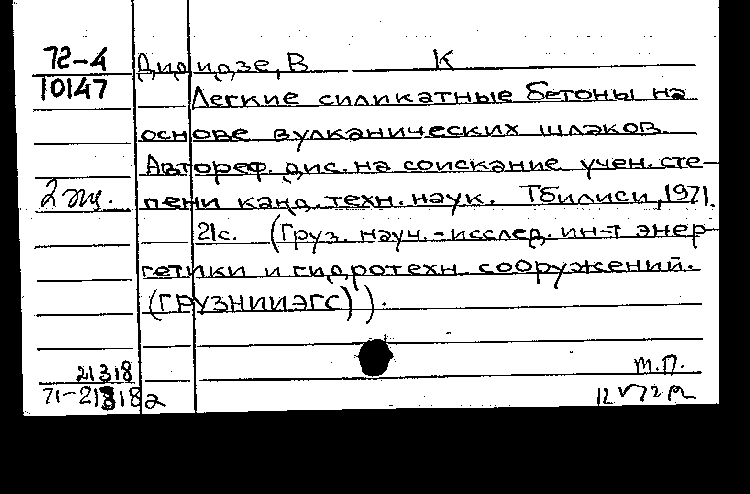 72-4
Дидидзе, В К
10147
Легкие силикатные бетоны на
основе вулканических шлаков.
Автореф. дис. на соискание учен. сте-
2 экз.
пени канд. техн. наук. Тбилиси, 1971.
21с. (Груз. науч.-исслед. ин-т энер-
гетики и гидротехн. сооружений.
(ГРУЗНИИЭГС)).
21318
т.п.
71-21318а
12 V 72